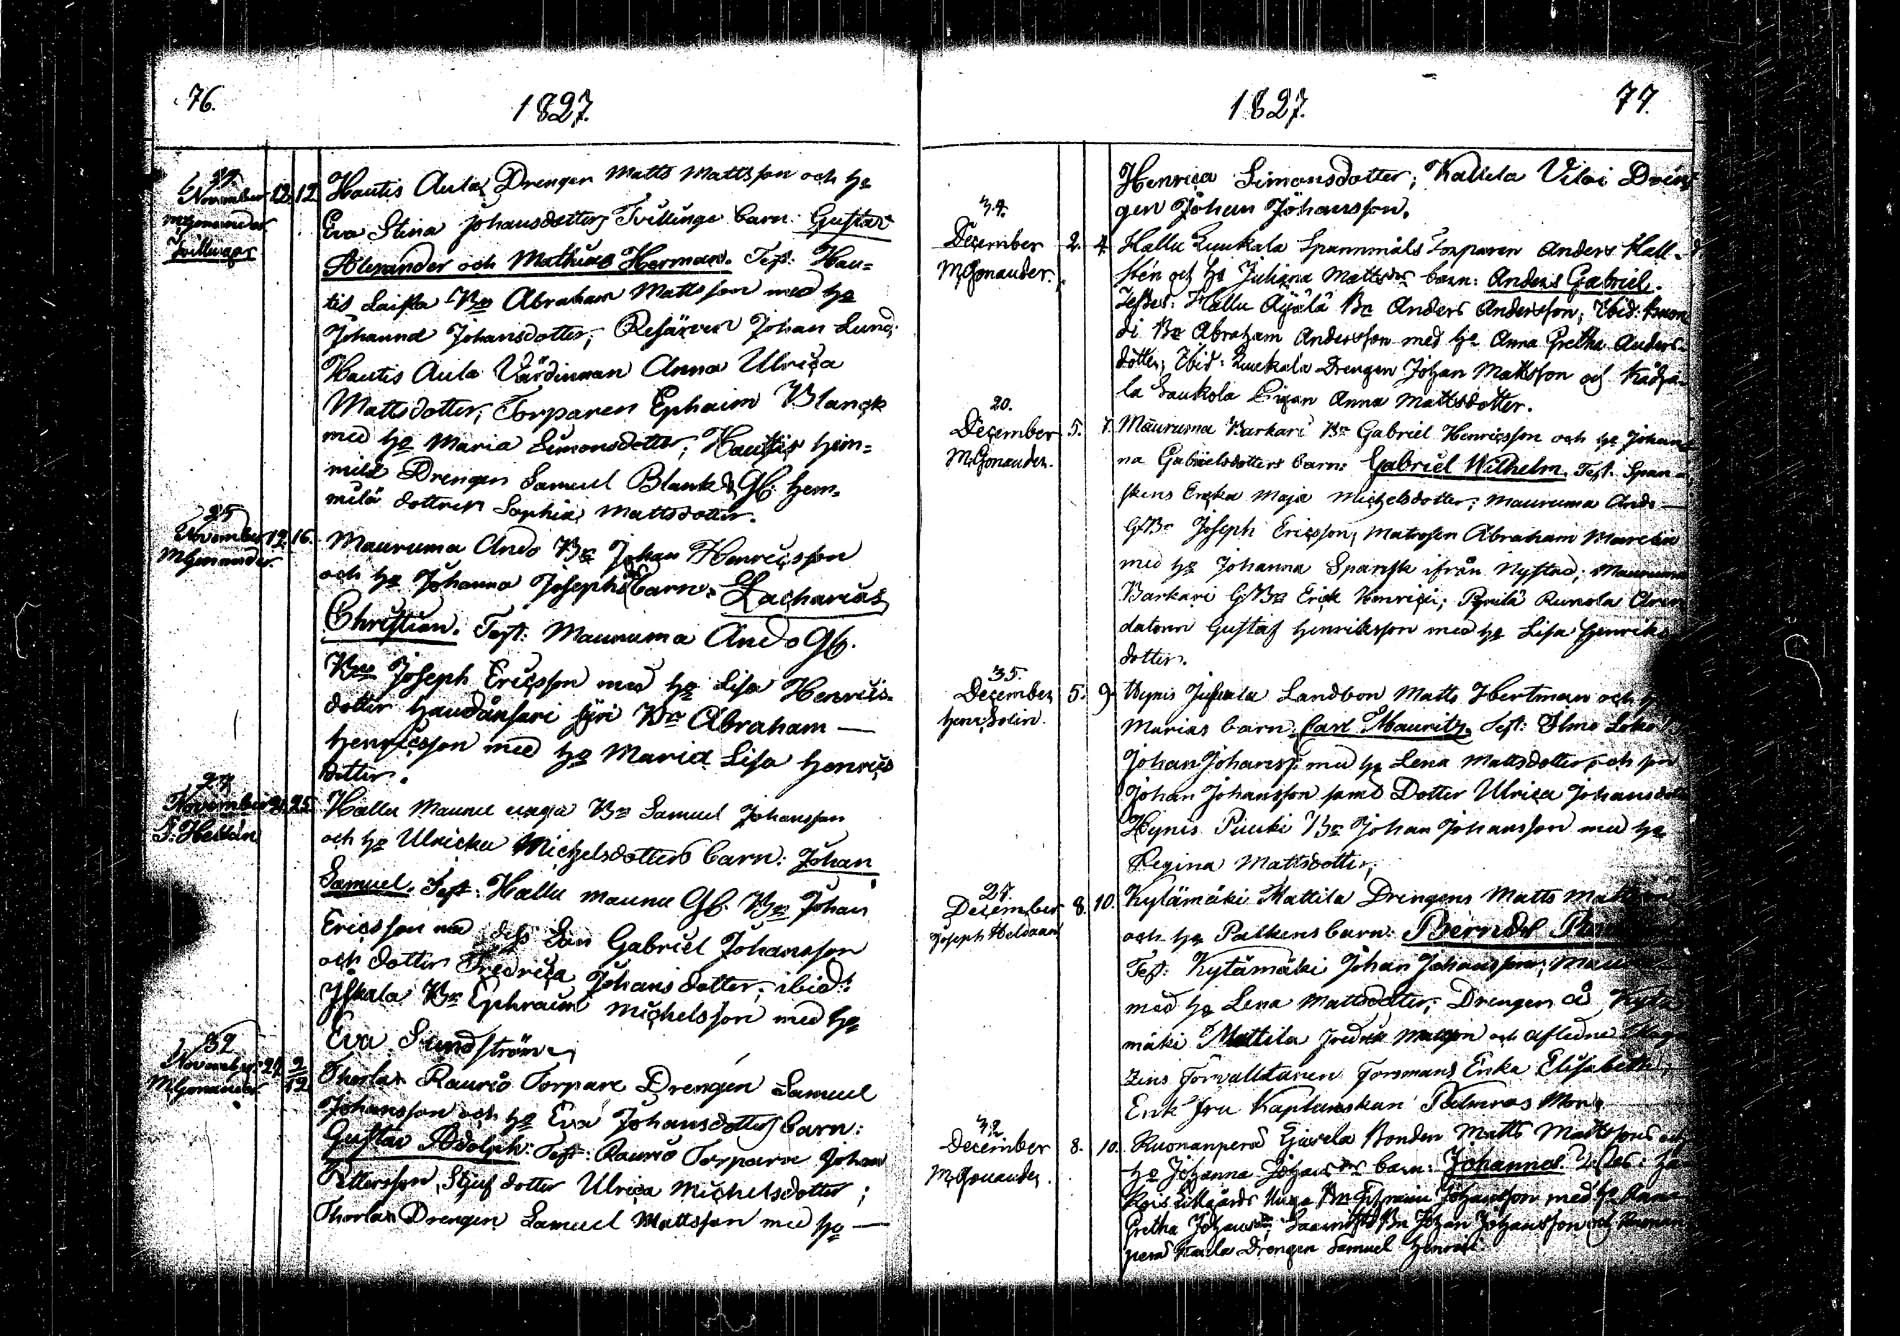 76.
1827.
November 12. 12
M Gonander
Tvillingar
Hautis Aula Drengen Matts Mattsson och H:s
Eva Stina Johansdotters Tvillinge barn: Gustav
Alexander och Mathias Herman. Test: Hau=
tis Laista B:n Abraham Mattsson med H:s
Johanna Johansdotter; Johan Lund;
Hautis Aula Värdinnan Anna Ulrica
Mattsdotter; Torparen Ephraim Blanck
med H:s Maria Simonsdotter; Hautis Hem=
milä Drengen Samuel Blanck & Gb. Hem=
milä dottren Sophia Mattsdotter.
November 12. 16.
M Gonander
Mauruma Ando B:n Johan Henricsson
och H:s Johanna Josephs barn: Zacharias
Christian. Test: Mauruma Ando Gb.
B:n Joseph Ericsson med H:s Lisa Henrics=
dotter B:n Abraham —
Henricsson med H:s Maria Lisa Henrics
dotter.
27
November 21. 25.
J. Hellän
Hallu Maunu B:n Samuel Johansson
och H:s Ulricka Michelsdotters barn: Johan
Samuel. Test: Hallu Maunu Gb. B:n Johan
Ericsson med dess Son Gabriel Johansson
och dotter Fredrica Johansdotter; ibid:
B:n Ephraim Michelsson med H:s
Eva Sundström.
32
November 29. 2/12
M Gonander
Raurio Torpare Drengen Samuel
Johansson och H:s Eva Johansdotters barn:
Gustav Adolph. Test: Raurio Torparen Johan
Pettersson, Stjuf dotter Ulrica Michelsdotter;
Drengen Samuel Mattsson med H:s —
1827.
77.
Henrica Simonsdotter; Kallela Drän
gen Johan Johansson.
34.
December 2. 4.
M Gonander.
Hallu Kuukala Spannmåls Torparen Anders Hall=
stén och H:s Juliana Matts d:rs barn: Anders Gabriel.
Testes: Hallu Äyälä B:n Anders Andersson; Ibid:
B:n Abraham Andersson med H:s Anna Gretha Anders=
dotter; Ibid: Kuukala Drengen Johan Mattsson och
la Saukola Pigan Anna Mattsdotter.
20.
December 5. 7.
M Gonander.
Mauruma Barkari B:n Gabriel Henricsson och H:s Johan
na Gabrielsdotters barn: Gabriel Wilhelm. Test. Span
skens Enka Maja Michelsdotter; Mauruma Ando —
G:B:n Joseph Ericsson; Matrosen Abraham
med H:s Johanna Spansk ifrån Nystad; Mauruma
Barkari G:B:n Erick Henrici; Runola Aren
datorn Gustaf Henriksson med H:s Lisa Henriks
dotter.
35.
December 5. 9.
Hynis Landbon Matts Hertman och H
Marias barn: Carl Mauritz. Test:
Johan Johanss: med H:s Lena Mattsdotter och son
Johan Johansson samt Dotter Ulrica Johansdott
Hynis Puuki B:n Johan Johansson med H:s
Regina Mattsdotter;
27.
December 8. 10.
Joseph Heldaan
Kylämäki Mattila Drengens Matts
och H:s Palkens barn: Berndt
Test: Kylämäki Johan Johansson;
med H:s Lena Mattsdotter; Drengen å Kylä
mäki Mattila Fredrik Mattsson och Afledne
zins Förvalltaren Forsmans Enka Elisabeth;
Enk Fru Kaplanskan
32
December 8. 10.
M Gonander.
Kuonanperä Bonden Matts Mattssons och
H:s Johanna Johans d:rs barn: Johannes. Testes:
B:n Ephraim Johansson med H:s
Gretha Johans d:r; B:n Johan Johansson och
perä Drengen Samuel Henrics